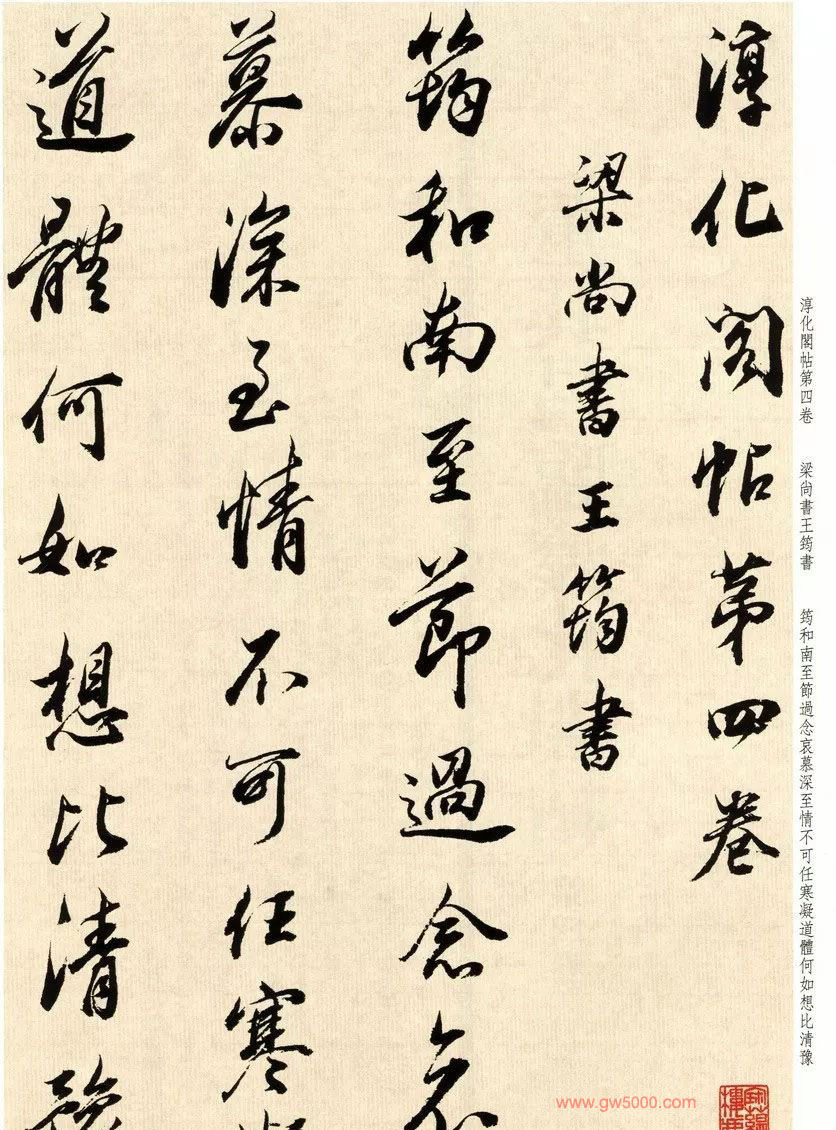 淳化閣帖第四卷　梁尚書王筠書　筠和南至節過念哀慕深至情不可任寒凝道體何如想比清豫
淳化閣帖第四卷
梁尚書王筠書
筠和南至節過念哀
慕深至情不可任寒
道體何如想比清豫
www.gw5000.com